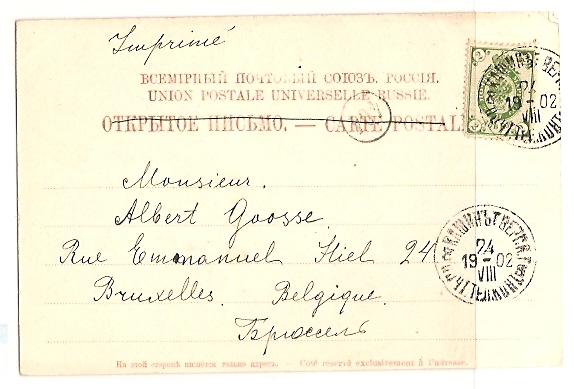 Imprimé
ВСЕМІРНЫЙ ПОЧТОВЫЙ СОЮЗЪ. РОССІЯ.
UNION POSTALE UNIVERSELLE RUSSIE.
ОТКРЫТОЕ ПИСЬМО. — CARTE POSTALE
Monsieur.
Albert Goosse.
Rue Emmanuel Hiel 24
Bruxelles. Belgique.
Брюссель
24
19 02
VIII
КАШИНЪ ТВЕРСК.
24
19 02
VIII
На этой сторонѣ пишется только адресъ. — Coté reservé exclusivement à l'adresse.